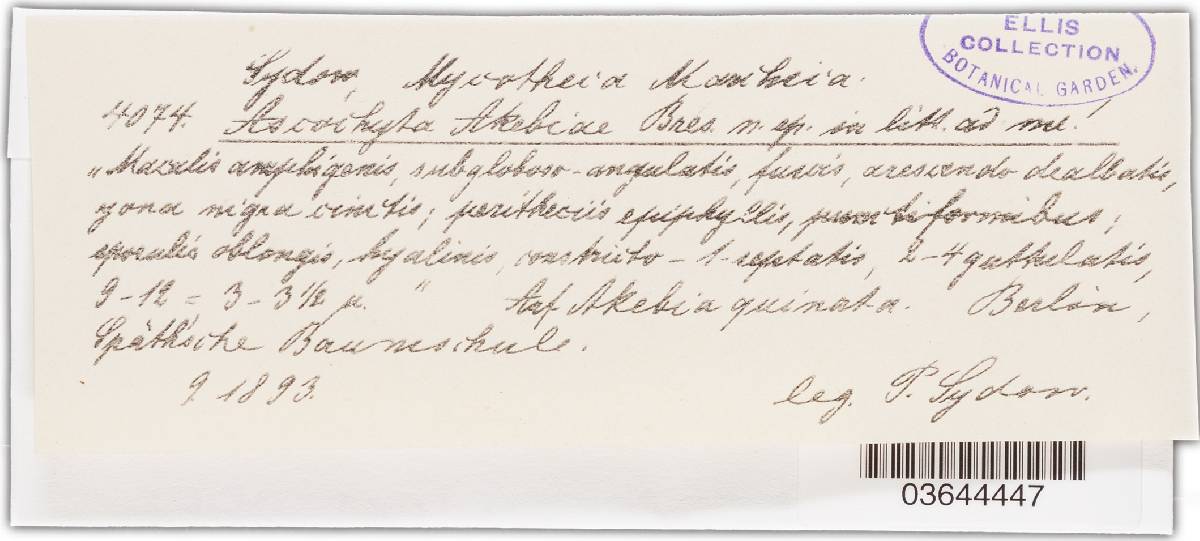 ELLIS
COLLECTION
BOTANICAL GARDEN.
Sydow, Mycotheca Marchica.
4074. Ascochyta Akebiae Bres. n. sp. in litt. ad me!
"Maculis amphigenis, subgloboso-angulatis, fuscis, arescendo dealbatis,
zona nigra cinctis; peritheciis epiphyllis, punctiformibus;
sporulis oblongis, hyalinis, constricto-1-septatis, 2-4 guttulatis,
9-12 = 3-3 1/2 µ. " Auf Akebia quinata. Berlin,
Späth'sche Baumschule.
9. 1893. leg. P. Sydow.
03644447